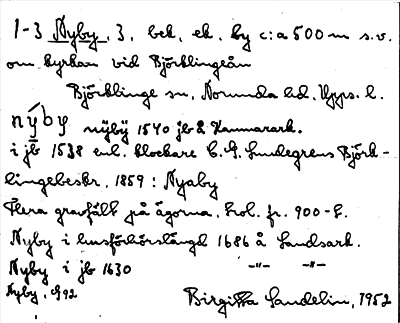 1-3 Nyby, 3, bek. ek. by c:a 500 m s.v.
om kyrkan vid Björklingeån
Björklinge sn, Norunda hd. Upps. l.
nýby nÿbÿ 1540 jb å Kammarark.
i jb 1538 enl. klockare C. G. Lundegrens Björk-
lingebeskr. 1859 : Nyaby
Flera gravfält på ägorna, trol. fr. 900-t.
Nyby i husförhörslängd 1686 å Landsark.
Nyby i jb 1630 -"- -"-
Nyby, 92
Birgitta Sandelin, 1952